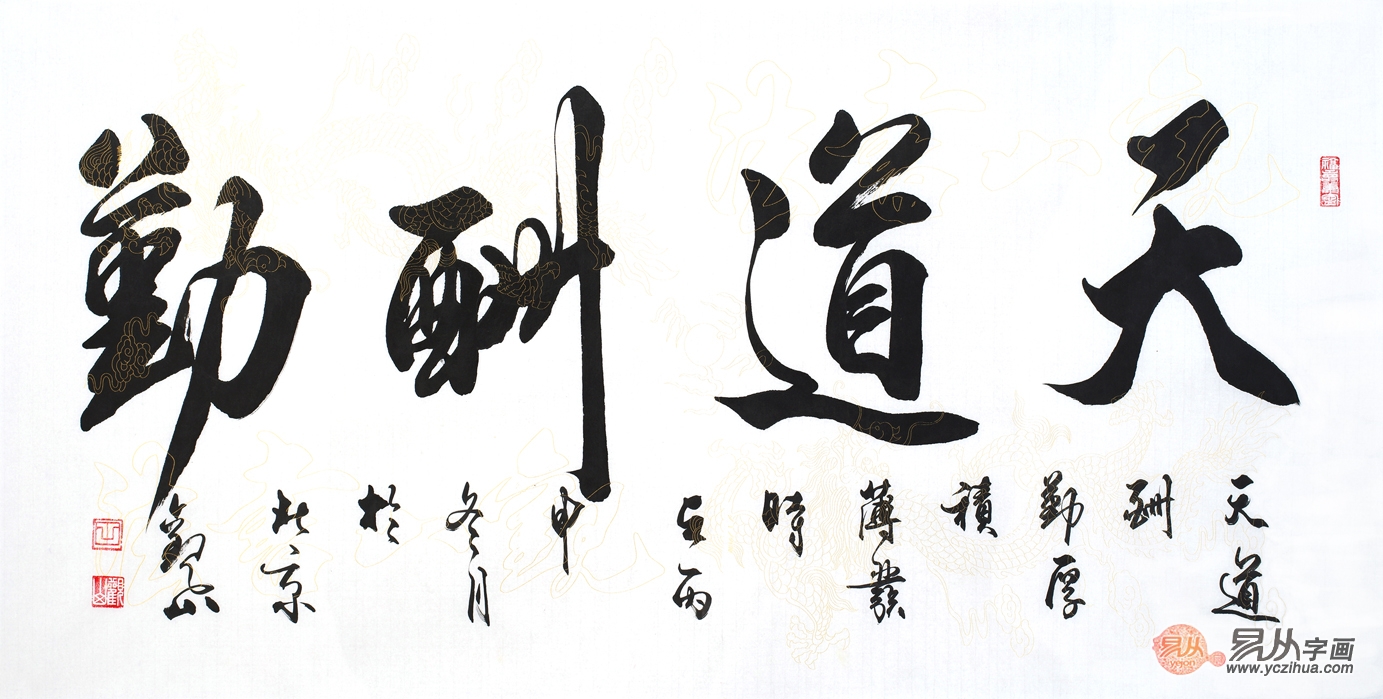 天道酬勤
天道
酬
勤厚
積
薄發
時
在丙
申
冬月
於
北京
觀山
觀山
易从
yejon
易从字画
www.yczihua.com